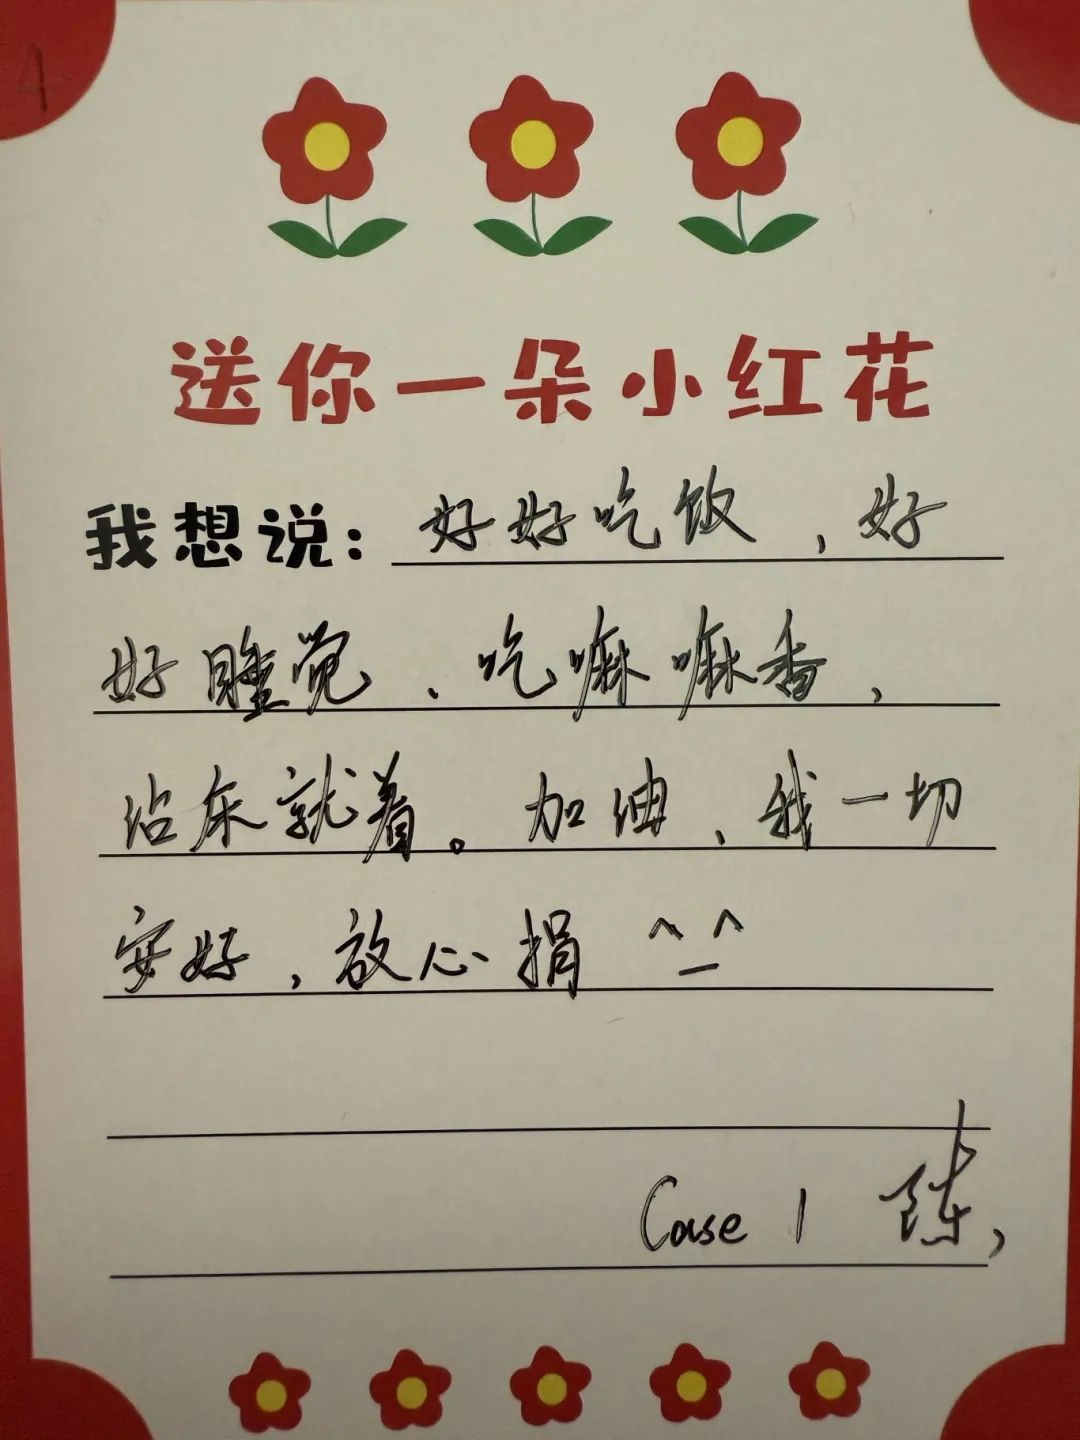 送你一朵小红花
我想说：好好吃饭，好
好睡觉、吃嘛嘛香，
沾床就着。加油、我一切
安好，放心捐 ^_^
Case 1 陈，